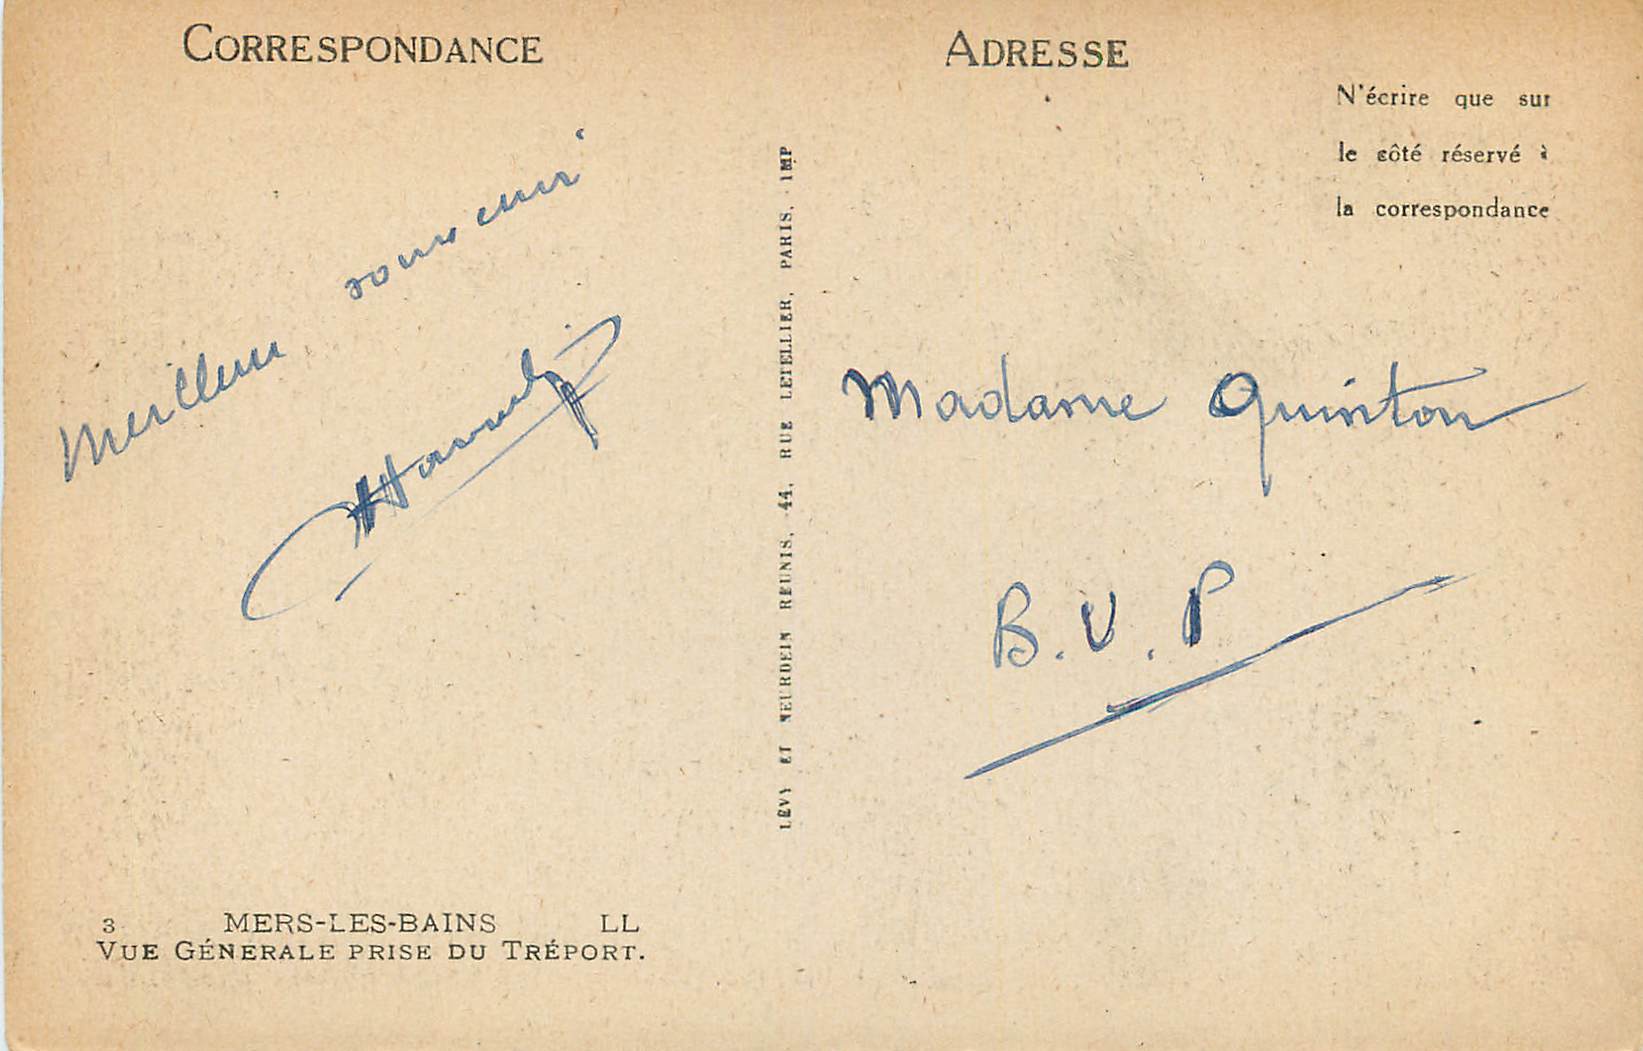 CORRESPONDANCE
Meilleur souvenir
ADRESSE
N'écrire que sur
le côté réservé à
la correspondance
Madame Quinton
B.V.P
LÉVY ET NEURDEIN RÉUNIS, 44, RUE LETELLIER, PARIS. IMP
3 MERS-LES-BAINS LL
VUE GÉNÉRALE PRISE DU TRÉPORT.